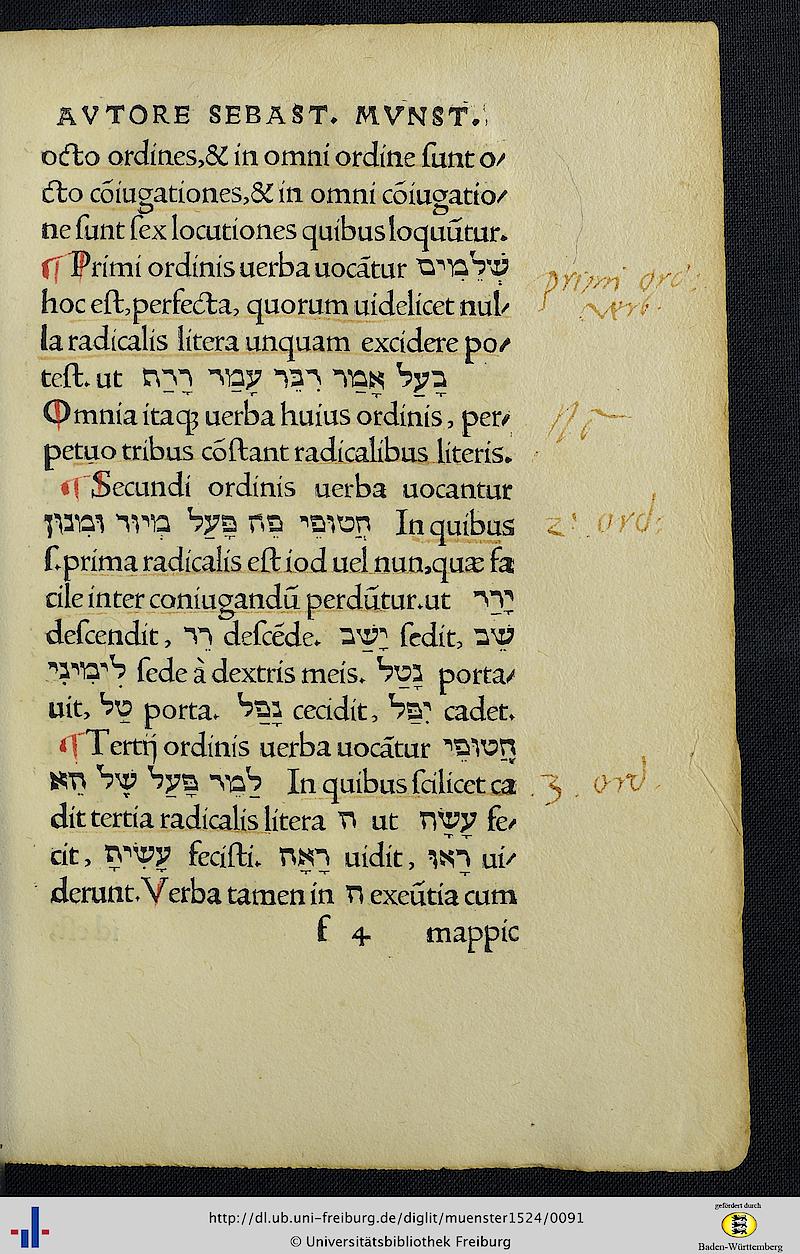 AVTORE SEBAST. MVNST.
octo ordines,& in omni ordine sunt o/
cto cõiugationes,& in omni cõiugatio/
ne sunt sex locutiones quibus loquũtur.
¶ Primi ordinis uerba uocãtur שְׁלֵמִים
primi ord:
verb.
hoc est,perfecta, quorum uidelicet nul/
la radicalis litera unquam excidere po/
test. ut בָּעַל אָמַר דִּבֵּר עָמַד
Omnia itaqꝫ uerba huius ordinis, per/
petuo tribus cõstant radicalibus literis.
¶ Secundi ordinis uerba uocantur
חֲטוּפֵי פֵה פָּעַל מְיוּד וּמְנוּן In quibus
2: ord:
s.prima radicalis est iod uel nun,quæ fa
cile inter coniugandũ perdũtur.ut יָרַד
descendit, רֵד descẽde. יָשַׁב sedit, שֵׁב
לִימִינִי sede à dextris meis. נָטַל porta/
uit, טַל porta. נָפַל cecidit, יִפַּל cadet.
¶ Tertij ordinis uerba uocãtur חֲטוּפֵי
לַמֵד פָּעַל שֶׁל הֵא In quibus scilicet ca
3. ord.
dit tertia radicalis litera ה ut עָשָׂה fe/
cit, עָשִׂיתָ fecisti. רָאָה uidit, רָאוּ ui/
derunt. Verba tamen in ה exeũtia cum
f 4 mappic
http://dl.ub.uni-freiburg.de/diglit/muenster1524/0091
© Universitätsbibliothek Freiburg
gefördert durch
Baden-Württemberg